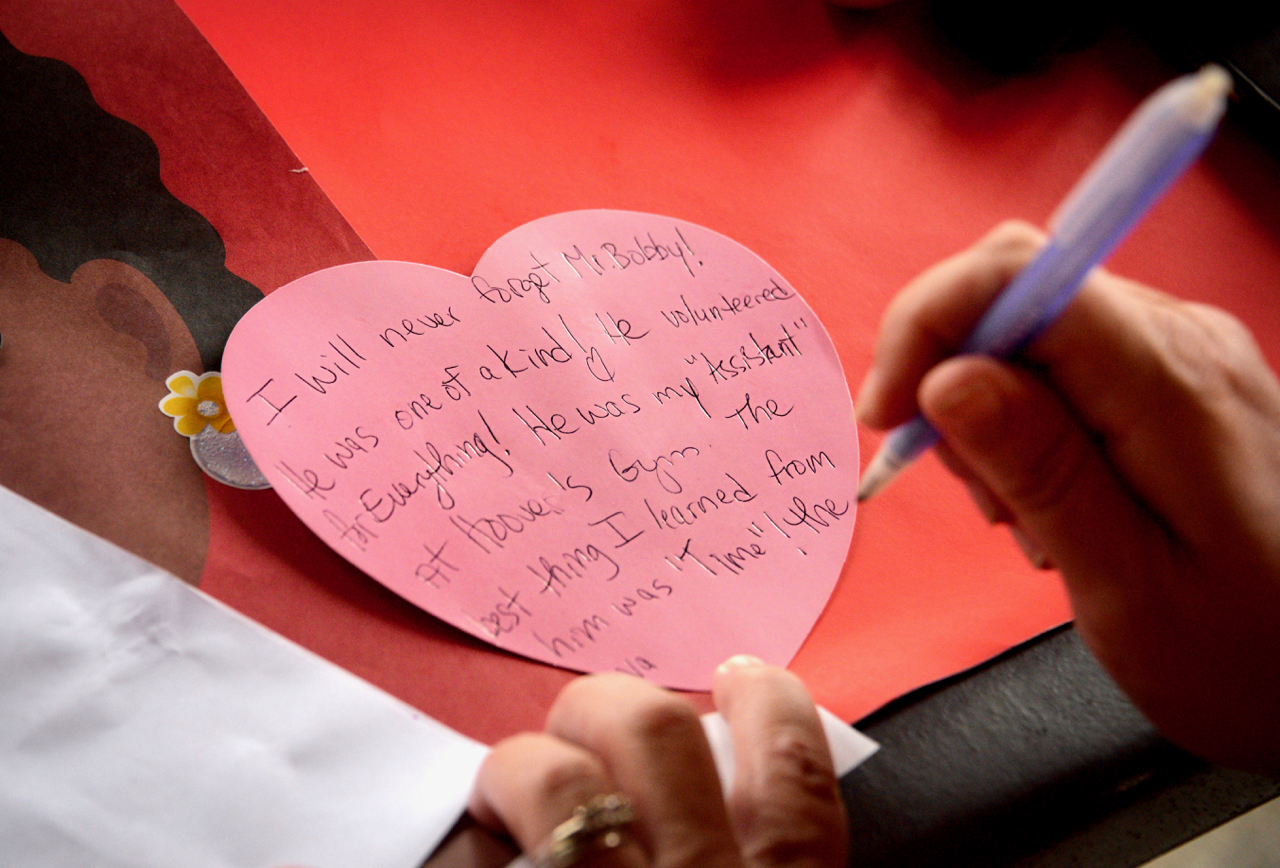 I will never forget Mr. Bobby!
He was one of a kind! He volunteered
for Everything! He was my "Assistant"
At Hoover's Gym. The
best thing I learned from
him was "Time"! The
va